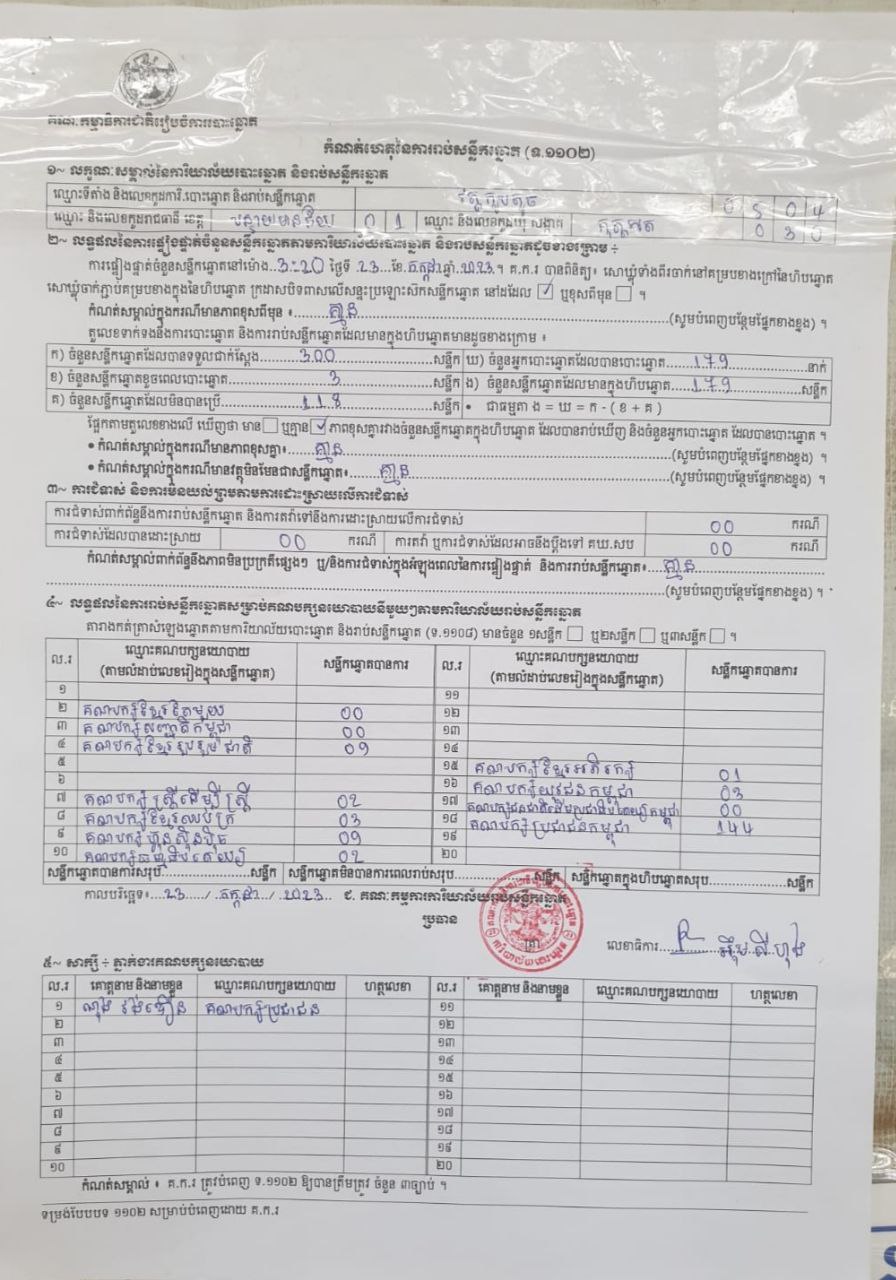 គណៈកម្មាធិការជាតិរៀបចំការបោះឆ្នោត
កំណត់ហេតុនៃការរាប់សន្លឹកឆ្នោត (ទ.១១០២)
១~ លក្ខណៈសម្គាល់នៃការិយាល័យបោះឆ្នោត និងរាប់សន្លឹកឆ្នោត
ឈ្មោះទីតាំង និងលេខកូដការិ.បោះឆ្នោត និងរាប់សន្លឹកឆ្នោត 0 5 0 4
ឈ្មោះ និងលេខកូដរាជធានី ខេត្ត បន្ទាយមានជ័យ 0 1 ឈ្មោះ និងលេខកូដឃុំ សង្កាត់ 0 3 0
២~ លទ្ធផលនៃការផ្ទៀងផ្ទាត់ចំនួនសន្លឹកឆ្នោតតាមការិយាល័យបោះឆ្នោត និងរាប់សន្លឹកឆ្នោតដូចខាងក្រោម ÷
ការផ្ទៀងផ្ទាត់ចំនួនសន្លឹកឆ្នោតនៅម៉ោង..3:20 ថ្ងៃទី 23..ខែ.កក្កដា.ឆ្នាំ.2023.។ គ.ក.រ បានពិនិត្យ៖ សោឃ្មុំទាំងពីរចាក់នៅគម្របខាងក្រៅនៃហិបឆ្នោត
សោឃ្មុំចាក់ភ្ជាប់គម្របខាងក្នុងនៃហិបឆ្នោត ក្រដាសបិទពាសលើសន្ទះប្រឡោះស៊កសន្លឹកឆ្នោត នៅដដែល ☑ ឬខុសពីមុន ☐ ។
កំណត់សម្គាល់ក្នុងករណីមានភាពខុសពីមុន ៖ គ្មាន (សូមបំពេញបន្ថែមផ្នែកខាងខ្នង) ។
តួលេខទាក់ទងនឹងការបោះឆ្នោត និងការរាប់សន្លឹកឆ្នោតដែលមានក្នុងហិបឆ្នោតមានដូចខាងក្រោម ៖
ក) ចំនួនសន្លឹកឆ្នោតដែលបានទទួលជាក់ស្តែង 300 សន្លឹក ឃ) ចំនួនអ្នកបោះឆ្នោតដែលបានបោះឆ្នោត 179 នាក់
ខ) ចំនួនសន្លឹកឆ្នោតខូចពេលបោះឆ្នោត 3 សន្លឹក ង) ចំនួនសន្លឹកឆ្នោតដែលមានក្នុងហិបឆ្នោត 179 សន្លឹក
គ) ចំនួនសន្លឹកឆ្នោតដែលមិនបានប្រើ 118 សន្លឹក • ជាធម្មតា ង = ឃ = ក - ( ខ + គ )
ផ្អែកតាមតួលេខខាងលើ ឃើញថា មាន ☐ ឬគ្មាន ☑ ភាពខុសគ្នារវាងចំនួនសន្លឹកឆ្នោតក្នុងហិបឆ្នោត ដែលបានរាប់ឃើញ និងចំនួនអ្នកបោះឆ្នោត ដែលបានបោះឆ្នោត ។
• កំណត់សម្គាល់ក្នុងករណីមានភាពខុសគ្នា៖ គ្មាន (សូមបំពេញបន្ថែមផ្នែកខាងខ្នង) ។
• កំណត់សម្គាល់ក្នុងករណីមានវត្ថុមិនមែនជាសន្លឹកឆ្នោត៖ គ្មាន (សូមបំពេញបន្ថែមផ្នែកខាងខ្នង) ។
៣~ ការជំទាស់ និងការមិនយល់ព្រមតាមការដោះស្រាយលើការជំទាស់
ការជំទាស់ពាក់ព័ន្ធនឹងការរាប់សន្លឹកឆ្នោត និងការតវ៉ាទៅនឹងការដោះស្រាយលើការជំទាស់ 00 ករណី
ការជំទាស់ដែលបានដោះស្រាយ 00 ករណី ការតវ៉ា ឬការជំទាស់ដែលអាចនឹងប្តឹងទៅ គឃ.សប 00 ករណី
កំណត់សម្គាល់ពាក់ព័ន្ធនឹងភាពមិនប្រក្រតីផ្សេងៗ ឬ/និងការជំទាស់ក្នុងអំឡុងពេលនៃការផ្ទៀងផ្ទាត់ និងការរាប់សន្លឹកឆ្នោត៖ គ្មាន
(សូមបំពេញបន្ថែមផ្នែកខាងខ្នង) ។
៤~ លទ្ធផលនៃការរាប់សន្លឹកឆ្នោតសម្រាប់គណបក្សនយោបាយនីមួយៗតាមការិយាល័យរាប់សន្លឹកឆ្នោត
តារាងកត់ត្រាសំឡេងឆ្នោតតាមការិយាល័យបោះឆ្នោត និងរាប់សន្លឹកឆ្នោត (ទ.១១០៨) មានចំនួន ១សន្លឹក ☐ ឬ២សន្លឹក ☐ ឬ៣សន្លឹក ☐ ។
ល.រ ឈ្មោះគណបក្សនយោបាយ (តាមលំដាប់លេខរៀងក្នុងសន្លឹកឆ្នោត) សន្លឹកឆ្នោតបានការ ល.រ ឈ្មោះគណបក្សនយោបាយ (តាមលំដាប់លេខរៀងក្នុងសន្លឹកឆ្នោត) សន្លឹកឆ្នោតបានការ
១ ១១
២ គណបក្សខ្មែរតែមួយ 00 ១២
៣ គណបក្សសញ្ជាតិកម្ពុជា 00 ១៣
៤ គណបក្សខ្មែររួបរួមជាតិ 09 ១៤
៥ ១៥ គណបក្សខ្មែរអភិរក្ស 01
៦ ១៦ គណបក្សយុវជនកម្ពុជា 03
៧ គណបក្សស្ត្រីដើម្បីស្ត្រី 02 ១៧ គណបក្សជនជាតិដើមប្រជាធិបតេយ្យកម្ពុជា 00
៨ គណបក្សខ្មែរឈប់ក្រ 03 ១៨ គណបក្សប្រជាជនកម្ពុជា 144
៩ គណបក្សហ៊្វុនស៊ិនប៉ិច 09 ១៩
១០ គណបក្សធម្មាធិបតេយ្យ 02 ២០
សន្លឹកឆ្នោតបានការសរុប សន្លឹក សន្លឹកឆ្នោតមិនបានការពេលរាប់សរុប សន្លឹក សន្លឹកឆ្នោតក្នុងហិបឆ្នោតសរុប សន្លឹក
កាលបរិច្ឆេទ៖ 23 / កក្កដា / 2023 ជ. គណៈកម្មការការិយាល័យរាប់សន្លឹកឆ្នោត
ប្រធាន
លេខាធិការ
៥~ សាក្សី ÷ ភ្នាក់ងារគណបក្សនយោបាយ
ល.រ គោត្តនាម និងនាមខ្លួន ឈ្មោះគណបក្សនយោបាយ ហត្ថលេខា ល.រ គោត្តនាម និងនាមខ្លួន ឈ្មោះគណបក្សនយោបាយ ហត្ថលេខា
១ គណបក្សប្រជាជន ១១
២ ១២
៣ ១៣
៤ ១៤
៥ ១៥
៦ ១៦
៧ ១៧
៨ ១៨
៩ ១៩
១០ ២០
កំណត់សម្គាល់ ៖ គ.ក.រ ត្រូវបំពេញ ទ.១១០២ ឱ្យបានត្រឹមត្រូវ ចំនួន ៣ច្បាប់ ។
ទម្រង់បែបបទ ១១០២ សម្រាប់បំពេញដោយ គ.ក.រ